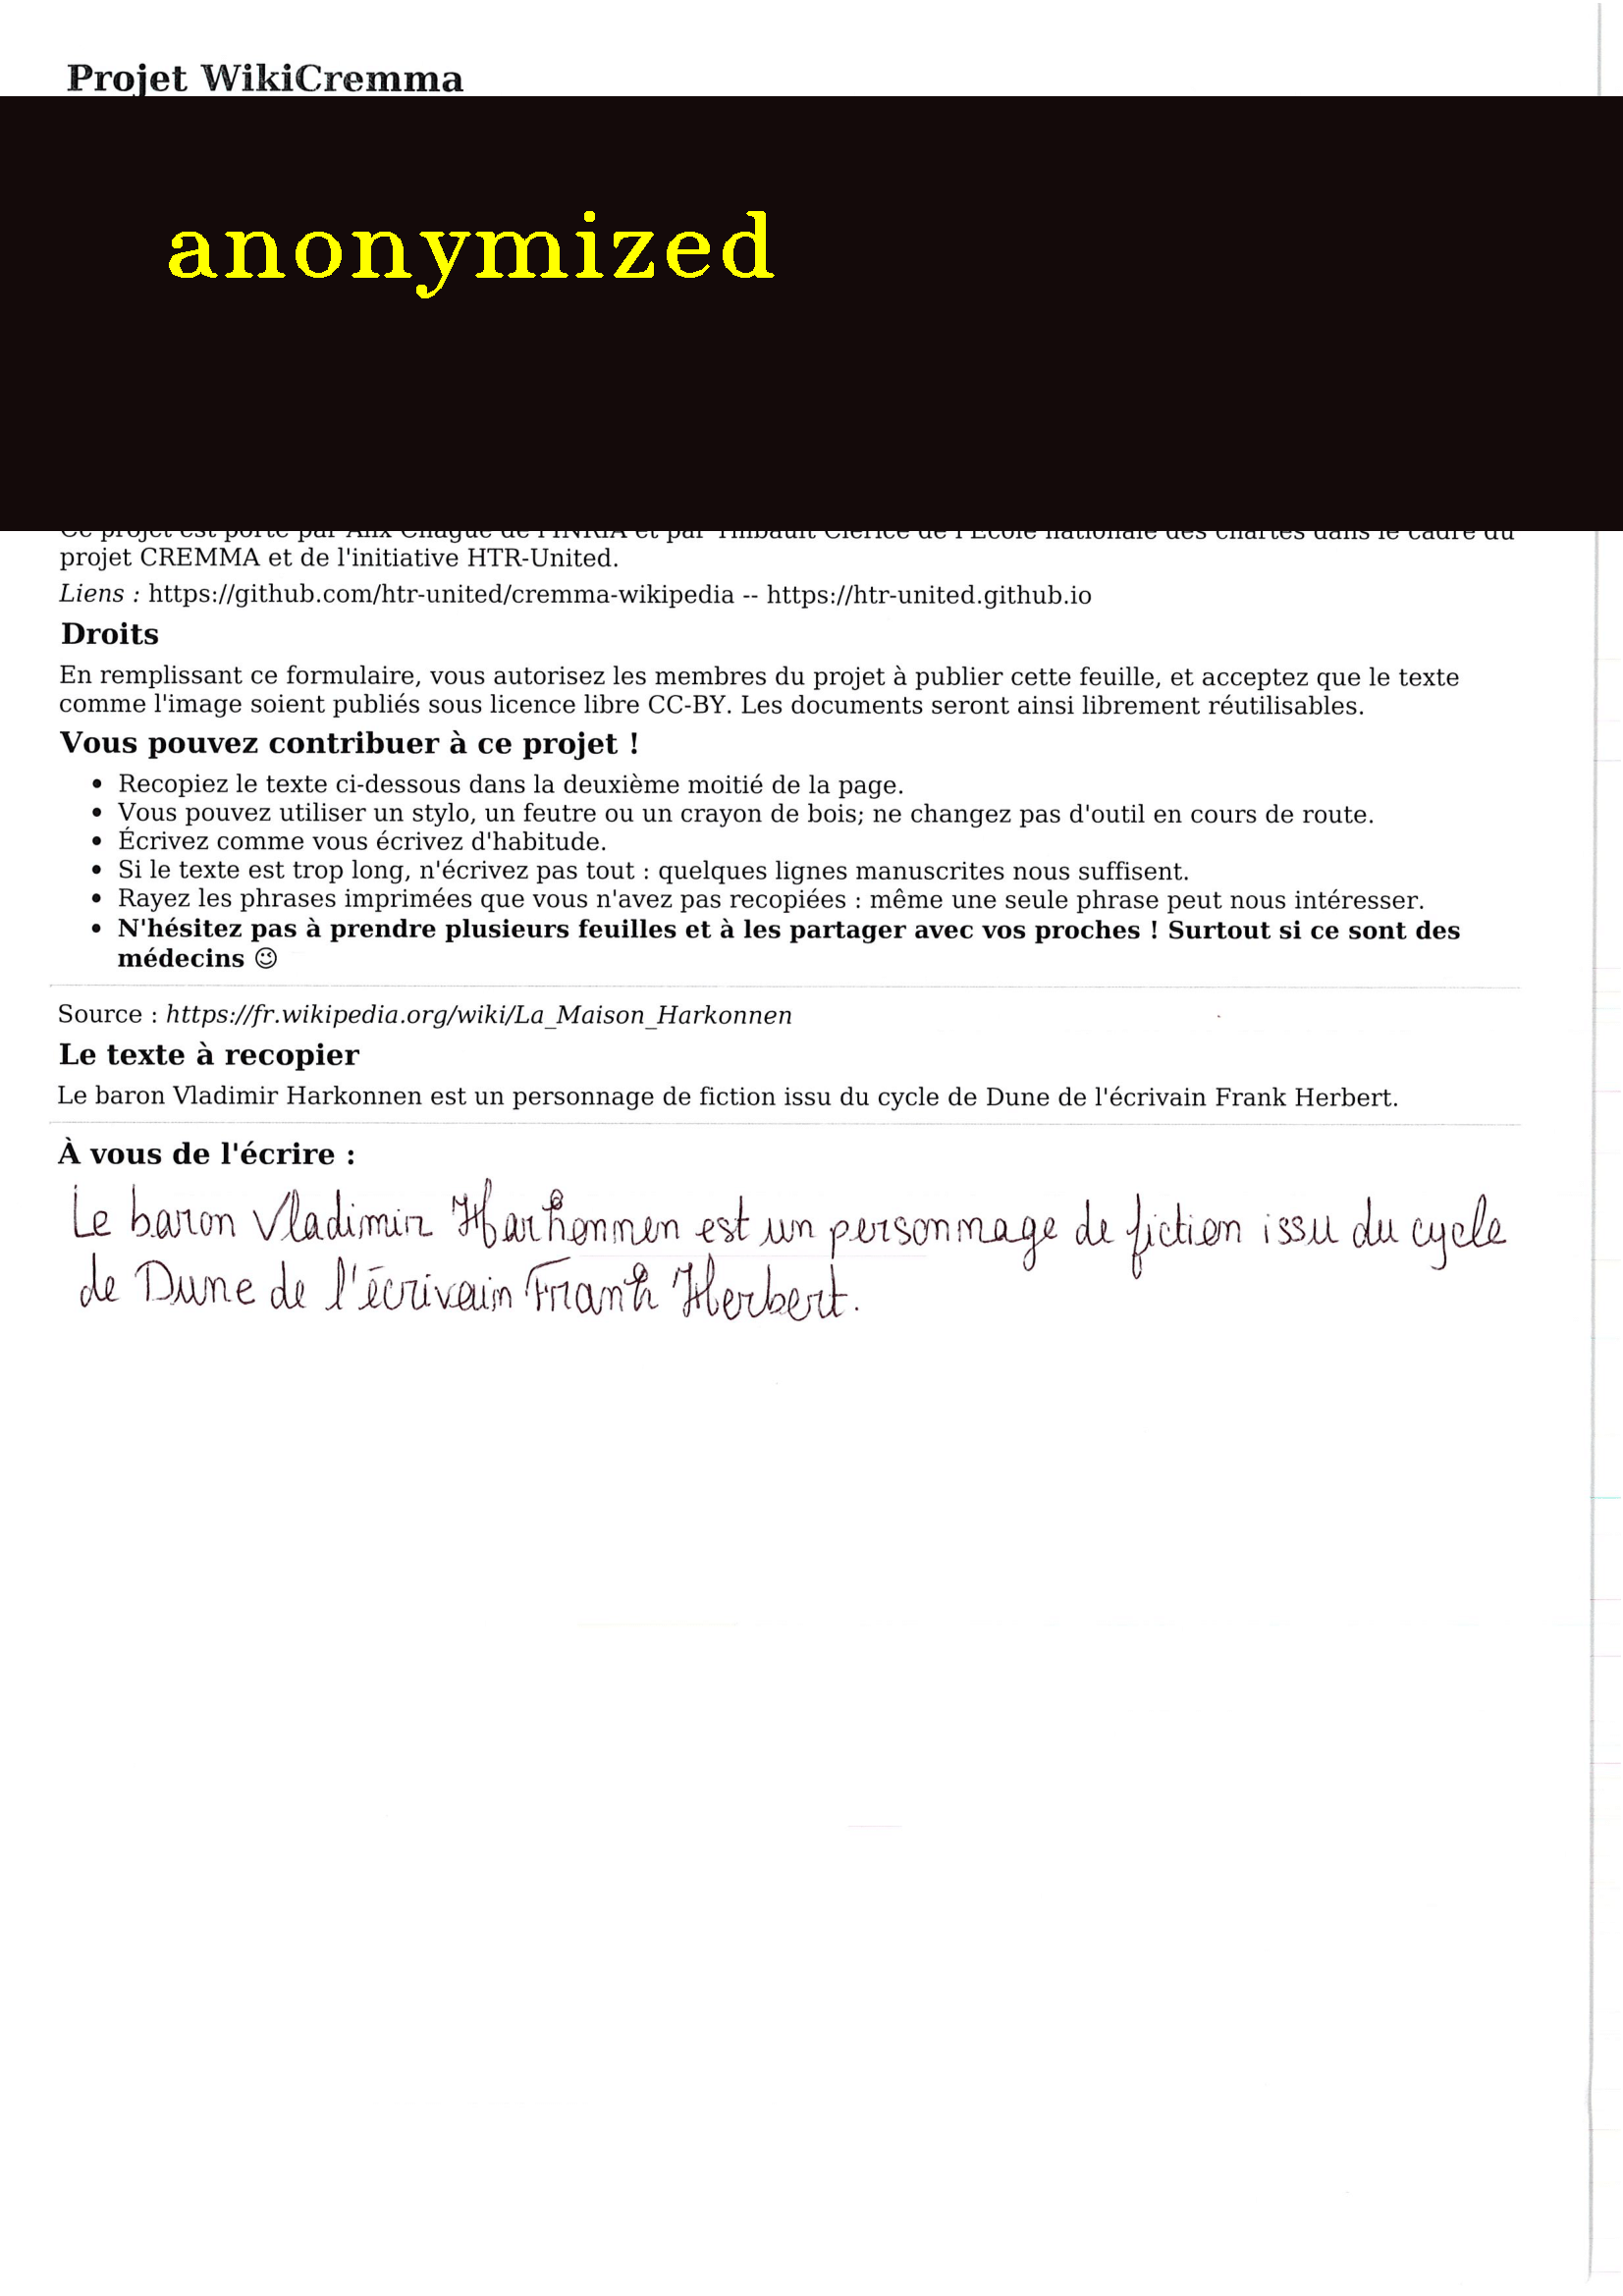 Projet WikiCremma
anonymized
Ce projet est porté par Alix Chagué de l'INRIA et par Thibault Clérice de l'École nationale des chartes dans le cadre du
projet CREMMA et de l'initiative HTR-United.
Liens : https://github.com/htr-united/cremma-wikipedia -- https://htr-united.github.io
Droits
En remplissant ce formulaire, vous autorisez les membres du projet à publier cette feuille, et acceptez que le texte
comme l'image soient publiés sous licence libre CC-BY. Les documents seront ainsi librement réutilisables.
Vous pouvez contribuer à ce projet !
• Recopiez le texte ci-dessous dans la deuxième moitié de la page.
• Vous pouvez utiliser un stylo, un feutre ou un crayon de bois; ne changez pas d'outil en cours de route.
• Écrivez comme vous écrivez d'habitude.
• Si le texte est trop long, n'écrivez pas tout : quelques lignes manuscrites nous suffisent.
• Rayez les phrases imprimées que vous n'avez pas recopiées : même une seule phrase peut nous intéresser.
• N'hésitez pas à prendre plusieurs feuilles et à les partager avec vos proches ! Surtout si ce sont des
médecins 😉
Source : https://fr.wikipedia.org/wiki/La_Maison_Harkonnen
Le texte à recopier
Le baron Vladimir Harkonnen est un personnage de fiction issu du cycle de Dune de l'écrivain Frank Herbert.
À vous de l'écrire :
Le baron Vladimir Harkonnen est un personnage de fiction issu du cycle
de Dune de l'écrivain Frank Herbert.